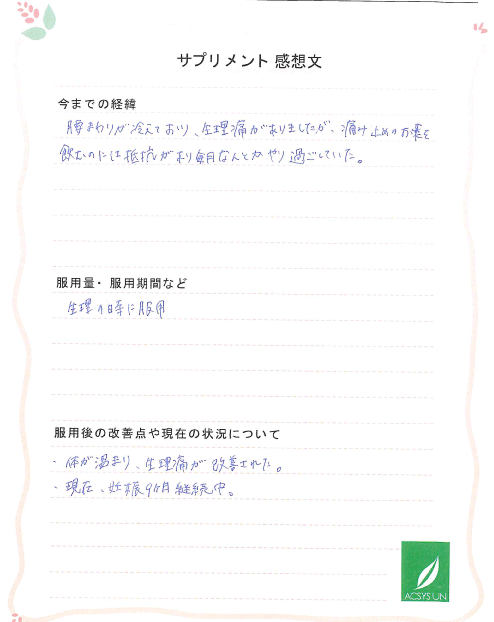 サプリメント 感想文
今までの経緯
腰まわりが冷えており、生理痛がありましたが、痛み止めの
飲むのには抵抗があり毎月なんとかやり過ごしていた。
服用量・服用期間など
生理の時に服用
服用後の改善点や現在の状況について
・体が温まり、生理痛が改善された。
・現在、妊娠9ヶ月継続中。
ACSYS UN